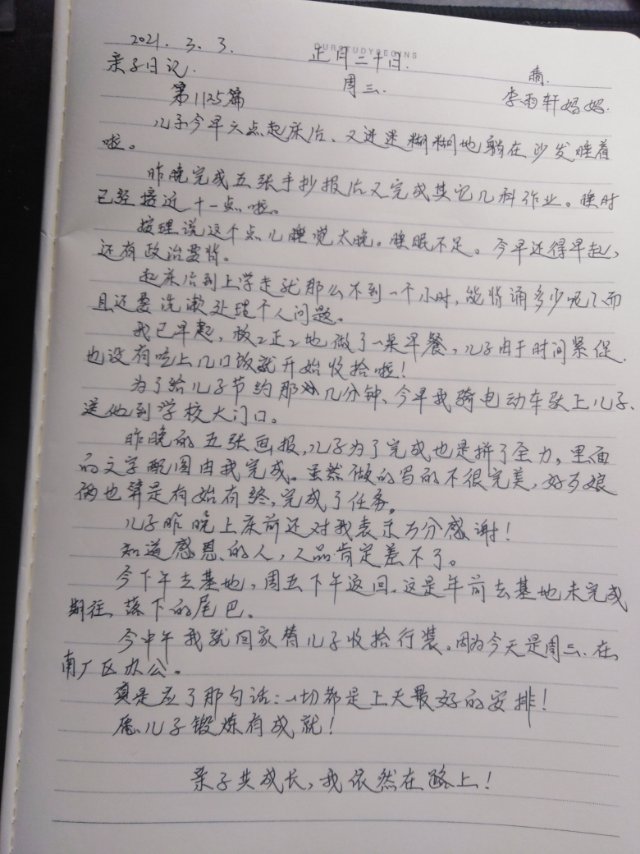 OURSTUDYBEGINS
2021.3.3. 正月二十日. 晴.
亲子日记. 周三. 李雨轩妈妈.
第1125篇
儿子今早六点起床后、又迷迷糊糊地躺在沙发睡着
啦。
昨晚完成五张手抄报后又完成其它几科作业。睡时
已经接近十一点啦。
按理说这个点儿睡觉太晚。睡眠不足。今早还得早起,
还有政治要背。
起床后到上学走就那么不到一个小时,能背诵多少呢?而
且还要洗漱处理个人问题。
我已早起,板板正正地做了一桌早餐,儿子由于时间紧促.
也没有吃上几口饭就开始收拾啦!
为了给儿子节约那几分钟、今早我骑电动车驮上儿子、
送他到学校大门口。
昨晚的五张画报,儿子为了完成也是拼了全力,里面
的文字配图由我完成。虽然做的写的不很完美,好歹娘
俩也算是有始有终,完成了任务。
儿子昨晚上床前还对我表示万分感谢!
知道感恩的人,人品肯定差不了。
今下午去基地,周五下午返回。这是年前去基地未完成
期往 落下的尾巴。
今中午我就回家替儿子收拾行装。因为今天是周三、在
南厂区办公。
真是应了那句话:一切都是上天最好的安排!
愿儿子锻炼有成就!
亲子共成长,我依然在路上!